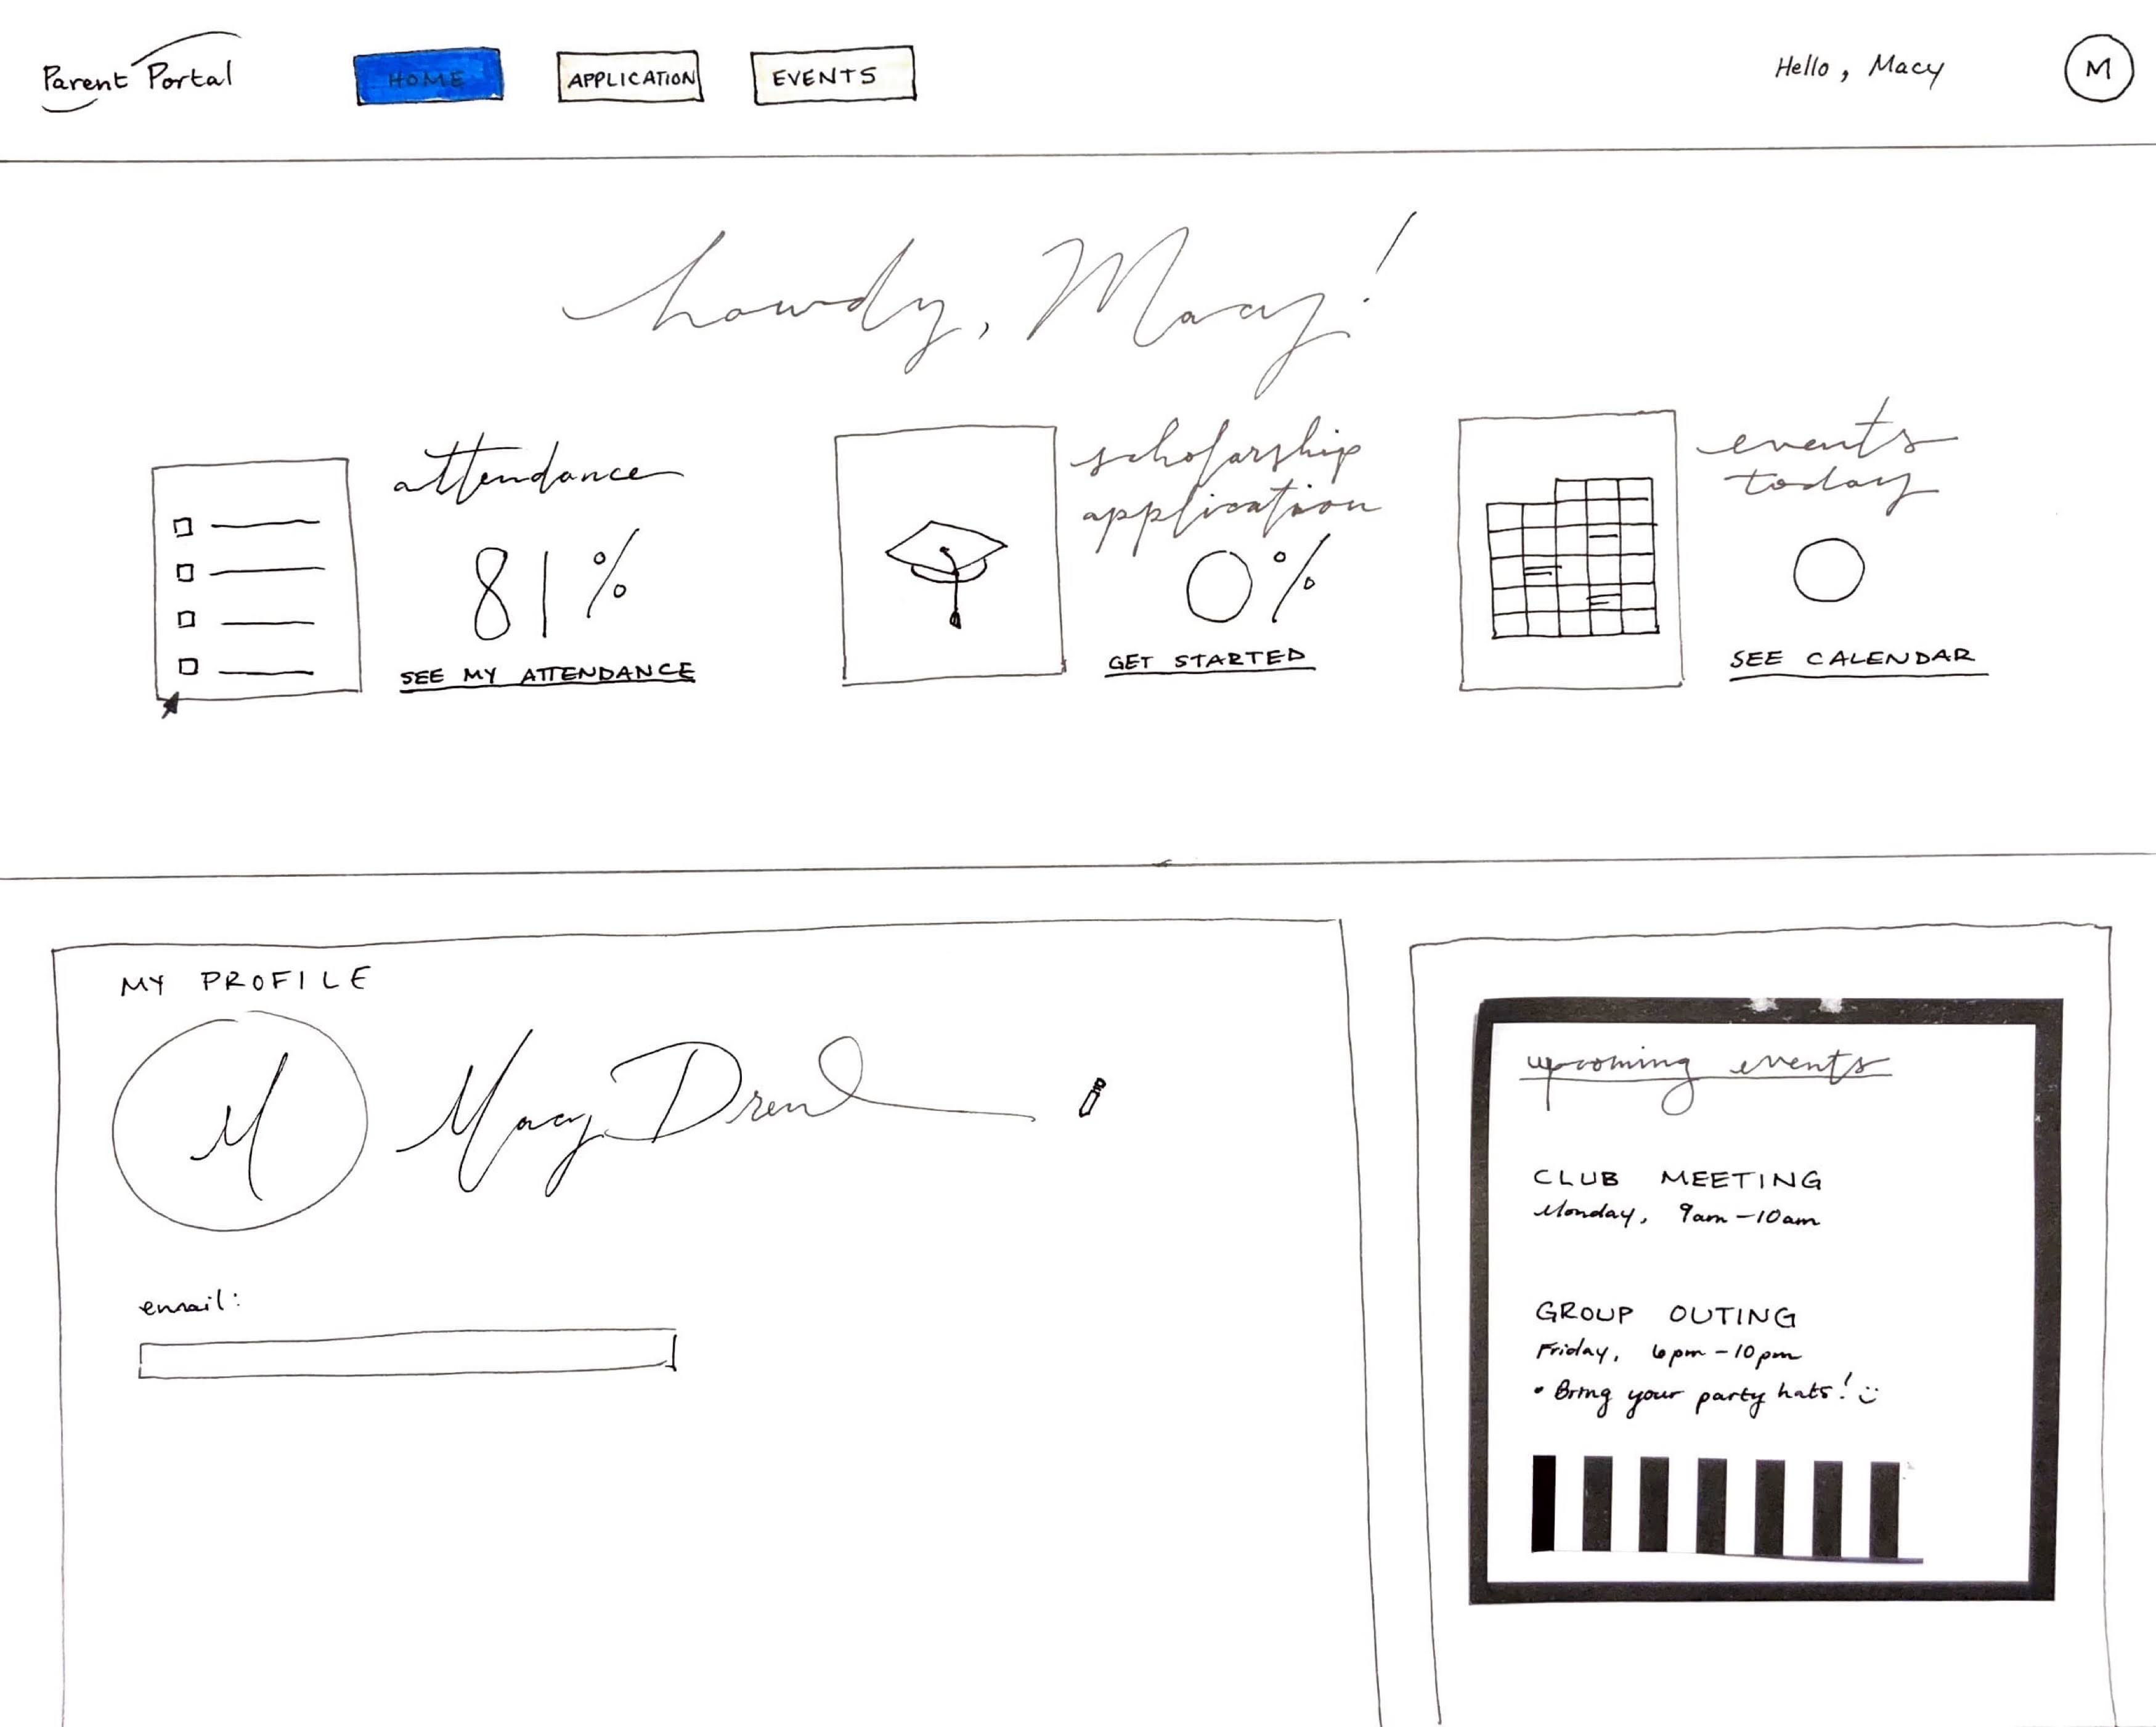 Parent Portal
HOME
APPLICATION
EVENTS
Hello, Macy
M
howdy, Macy!
attendance
81%
SEE MY ATTENDANCE
scholarship
application
0%
GET STARTED
events
today
0
SEE CALENDAR
MY PROFILE
M
Macy
email:
upcoming events
CLUB MEETING
Monday, 9am-10am
GROUP OUTING
Friday, 6pm-10pm
• Bring your party hats! :)